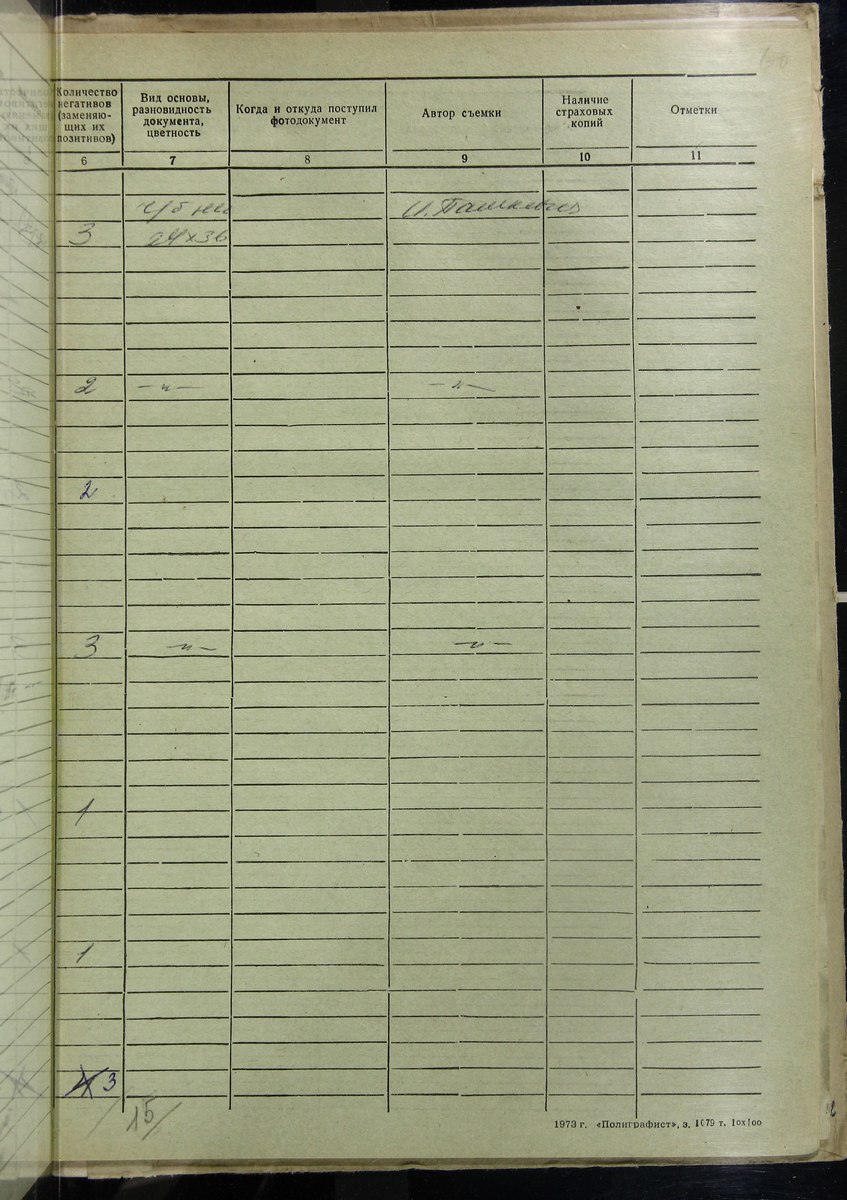 Количество
негативов
(заменяю-
щих их
позитивов)
Вид основы,
разновидность
документа,
цветность
Когда и откуда поступил
фотодокумент
Автор съемки
Наличие
страховых
копий
Отметки
6 7 8 9 10 11
ч/б нег И. Пашкевич
3 24х36
2 —"— —"—
2
3 —"— —"—
1
1
3
15/
1973 г. «Полиграфист», з. 1679 т. 10х100